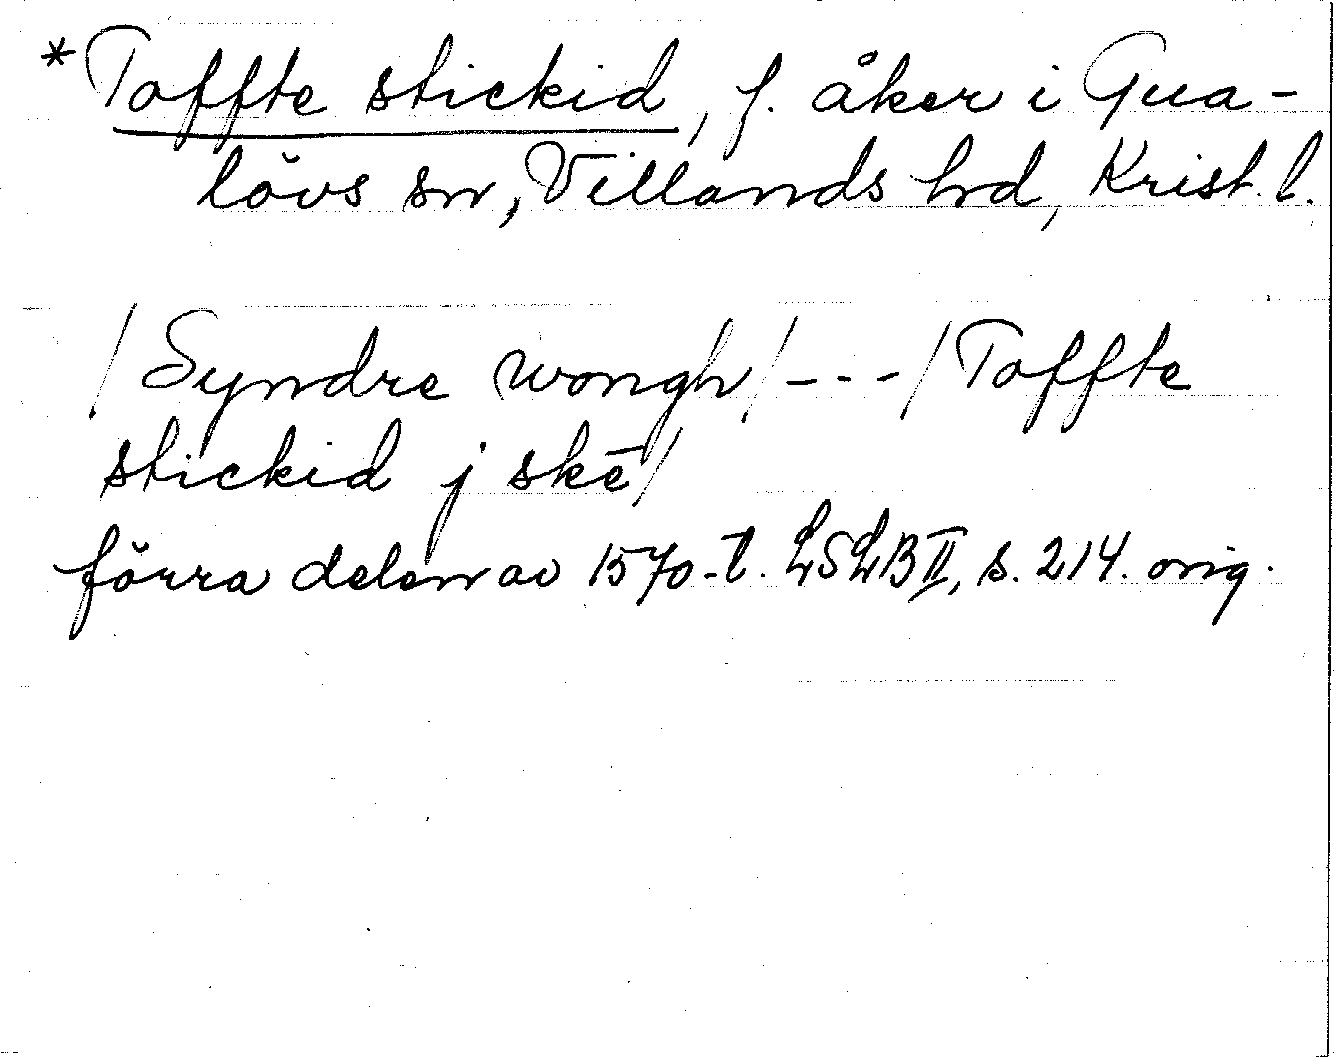 *Toffte stickid, f. åker i Gua-
lövs sn, Villands hd, Krist. l.
/Syndre wongh/---/Toffte
stickid j skē/
förra delen av 1570-t. LSLB II, s. 214. orig.